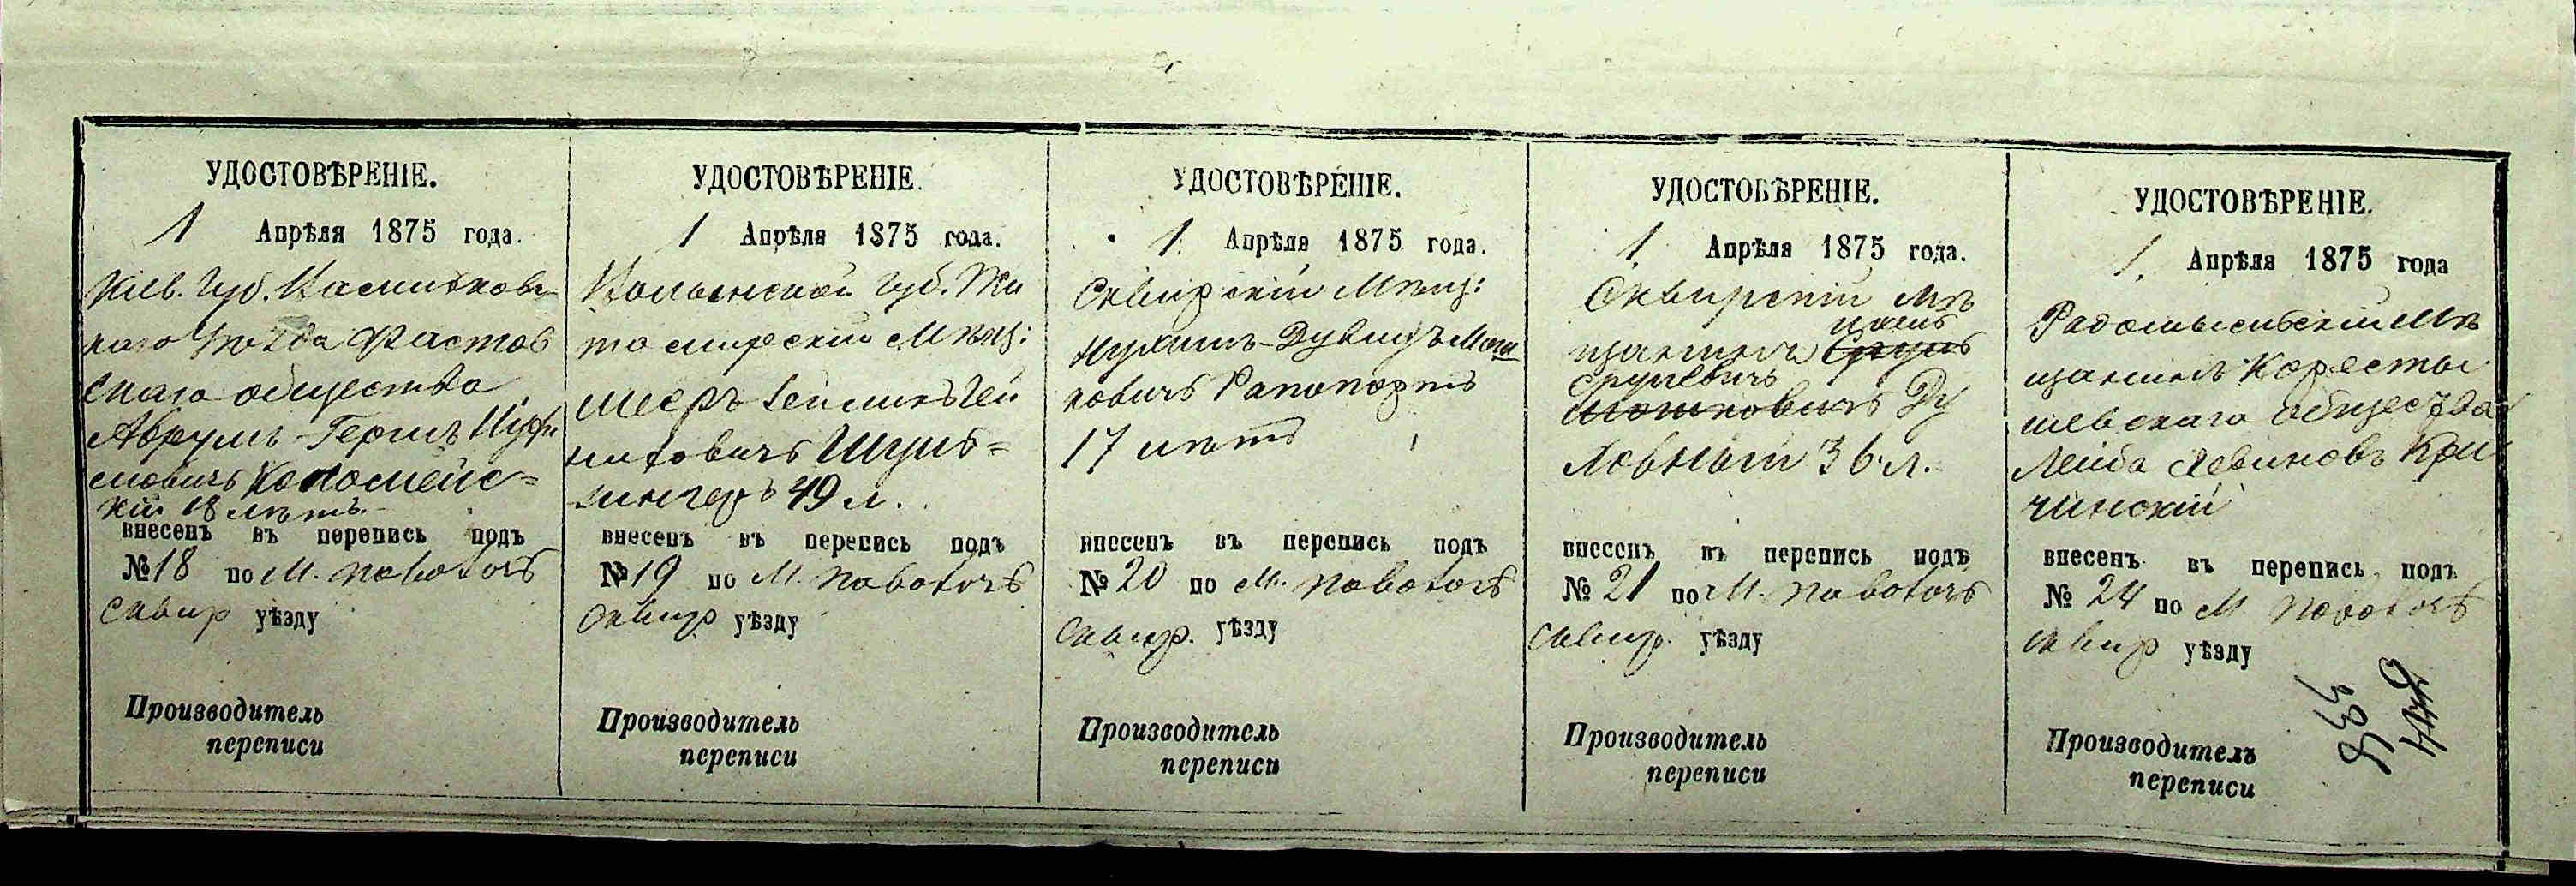 УДОСТОВѢРЕНІЕ.
1 Апрѣля 1875 года.
Кіев. Губ. Васильков
каго Уѣзда Фастов
скаго общества
Аврумъ-Гершъ
мовичъ Коломейс=
кій 18 лѣтъ.
внесенъ въ перепись подъ
№ 18 по М. Паволочѣ
Сквир уѣзду
Производитель
переписи
УДОСТОВѢРЕНІЕ.
1 Апрѣля 1875 года.
Волынской Губ. Жи
томирскій Мѣщ:
Шеръ
Шуль=
зингеръ 49 л.
внесенъ въ перепись подъ
№ 19 по М. Паволочѣ
Сквир уѣзду
Производитель
переписи
УДОСТОВѢРЕНІЕ.
1 Апрѣля 1875 года.
Сквирскій Мѣщ:
Нухимъ-Дувидъ Мош
ковичъ Рапопортъ
17 лѣтъ
внесенъ въ перепись подъ
№ 20 по М. Паволочѣ
Сквир. уѣзду
Производитель
переписи
УДОСТОВѢРЕНІЕ.
1 Апрѣля 1875 года.
Сквирскій Мѣ
щанинъ Сруль
Срулевичъ
Мошковичъ Ду
ховный 36 л.
внесенъ въ перепись подъ
№ 21 по М. Паволочѣ
Сквир. уѣзду
Производитель
переписи
УДОСТОВѢРЕНІЕ.
1. Апрѣля 1875 года
Радомысльскій Мѣ
щанинъ Коросты
шевскаго общества
Лейба Левиковъ Кри
чинскій
внесенъ въ перепись подъ
№ 24 по М Паволочѣ
Сквир уѣзду
Производитель
переписи